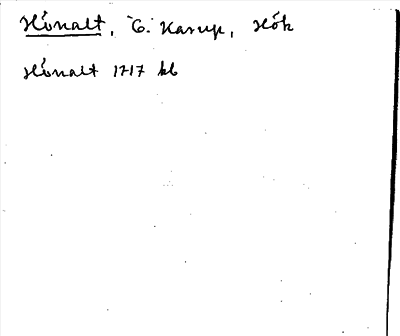 Hönalt, Ö. Karup, Hök
Hönalt 1717 kb